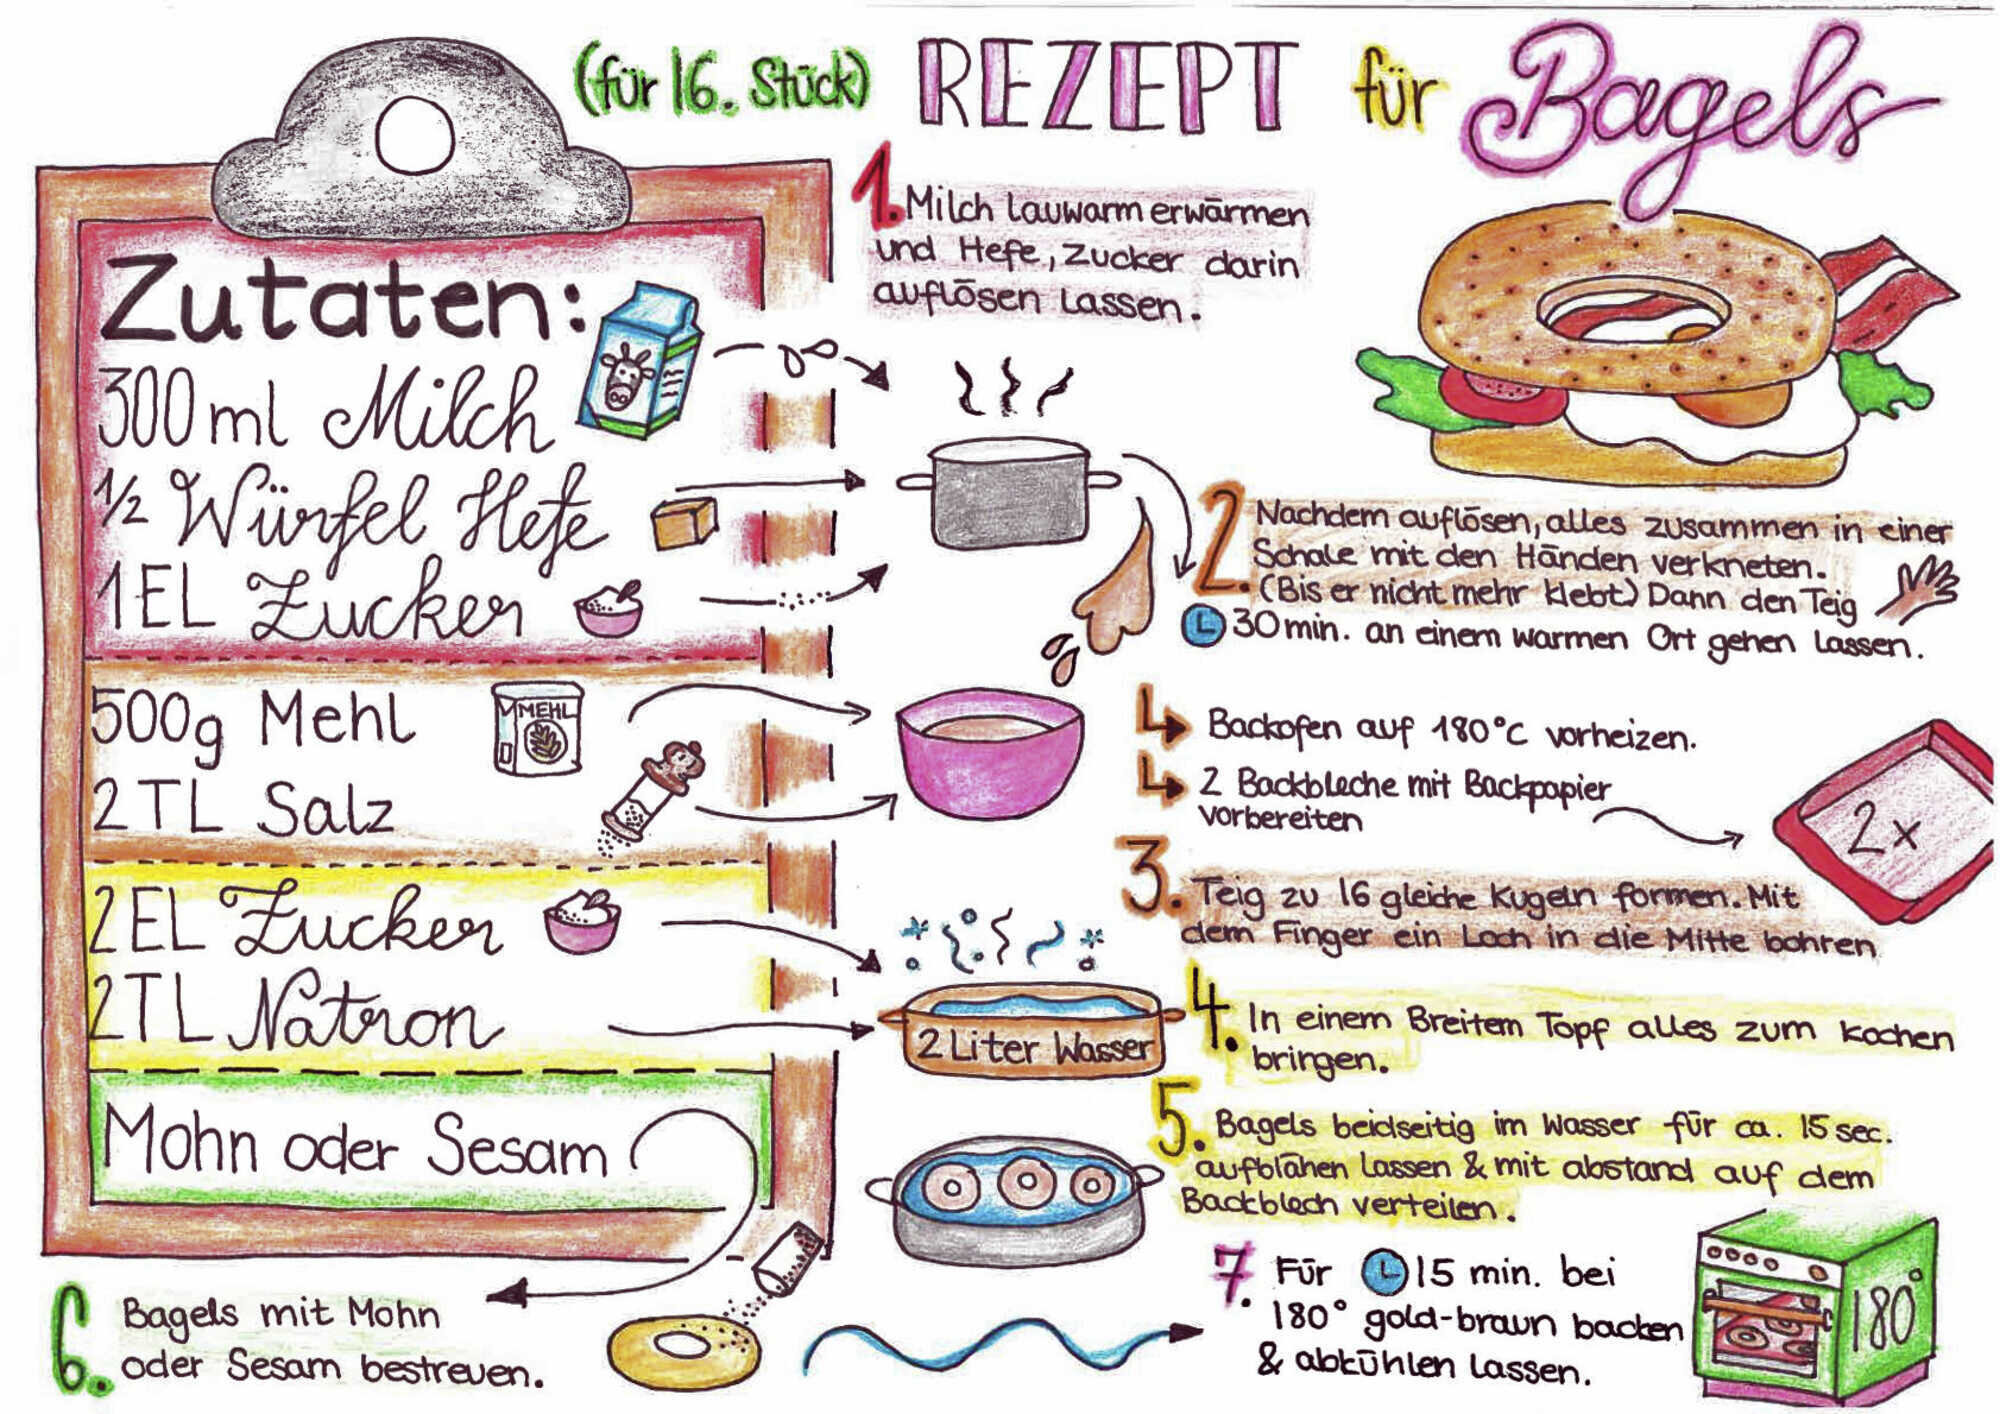 (für 16. Stück) REZEPT für Bagels
Zutaten:
300 ml Milch
1/2 Würfel Hefe
1 EL Zucker
500g Mehl
MEHL
2 TL Salz
2 EL Zucker
2 TL Natron
Mohn oder Sesam
1. Milch lauwarm erwärmen
und Hefe, Zucker darin
auflösen lassen.
2. Nachdem auflösen, alles zusammen in einer
Schale mit den Händen verkneten.
(Bis er nicht mehr klebt) Dann den Teig
30 min. an einem warmen Ort gehen lassen.
Backofen auf 180°C vorheizen.
2 Backbleche mit Backpapier
vorbereiten
2x
3. Teig zu 16 gleiche Kugeln formen. Mit
dem Finger ein Loch in die Mitte bohren
2 Liter Wasser
4. In einem Breitem Topf alles zum kochen
bringen.
5. Bagels beidseitig im Wasser für ca. 15 sec.
aufblähen lassen & mit abstand auf dem
Backblech verteilen.
6. Bagels mit Mohn
oder Sesam bestreuen.
7. Für 15 min. bei
180° gold-braun backen
& abkühlen lassen.
180°